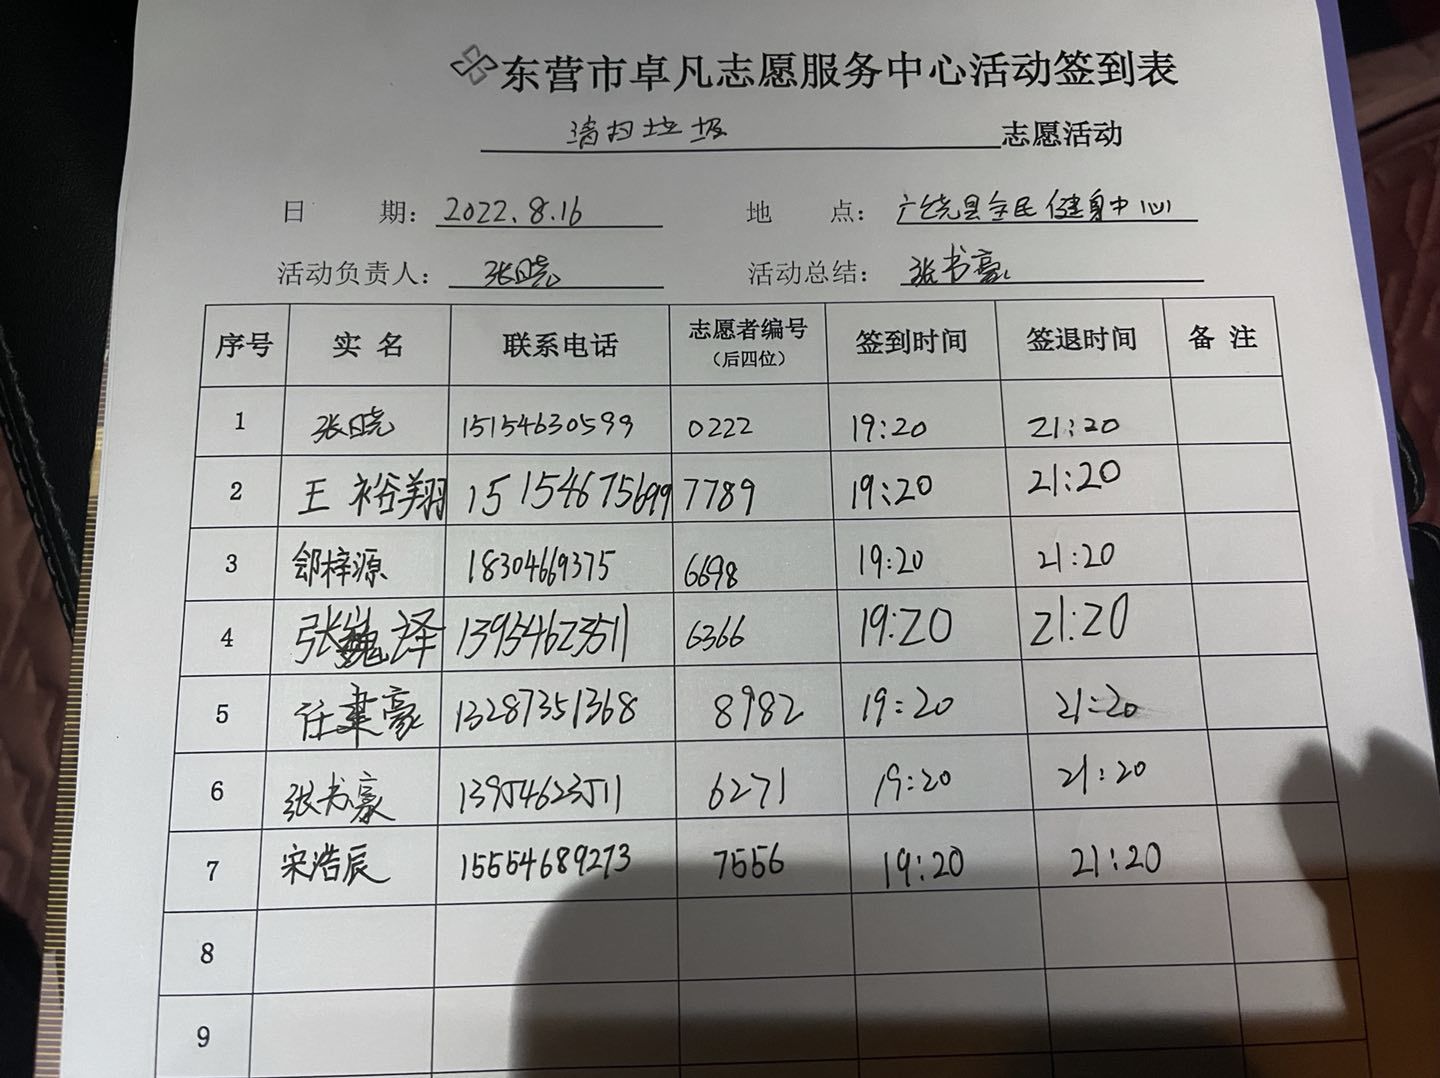 东营市卓凡志愿服务中心活动签到表
清扫垃圾 志愿活动
日 期：2022.8.16 地 点：广饶县全民健身中心
活动负责人：张晓 活动总结：张书豪
序号 实名 联系电话 志愿者编号（后四位） 签到时间 签退时间 备注
1 张晓 15154630599 0222 19:20 21:20
2 王裕翔 15154675699 7789 19:20 21:20
3 郐梓源 18304669375 6698 19:20 21:20
4 张巍泽 13954623511 6366 19:20 21:20
5 任建豪 13287351368 8982 19:20 21:20
6 张书豪 13954623511 6271 19:20 21:20
7 宋浩辰 15554689273 7556 19:20 21:20
8
9